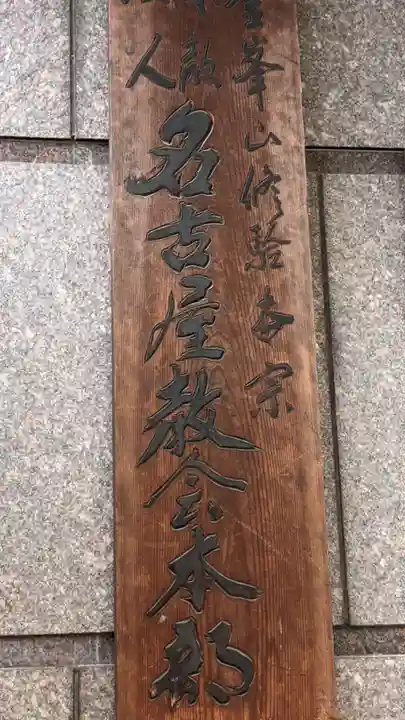 峯山修験本宗
教
人
名古屋教会本部